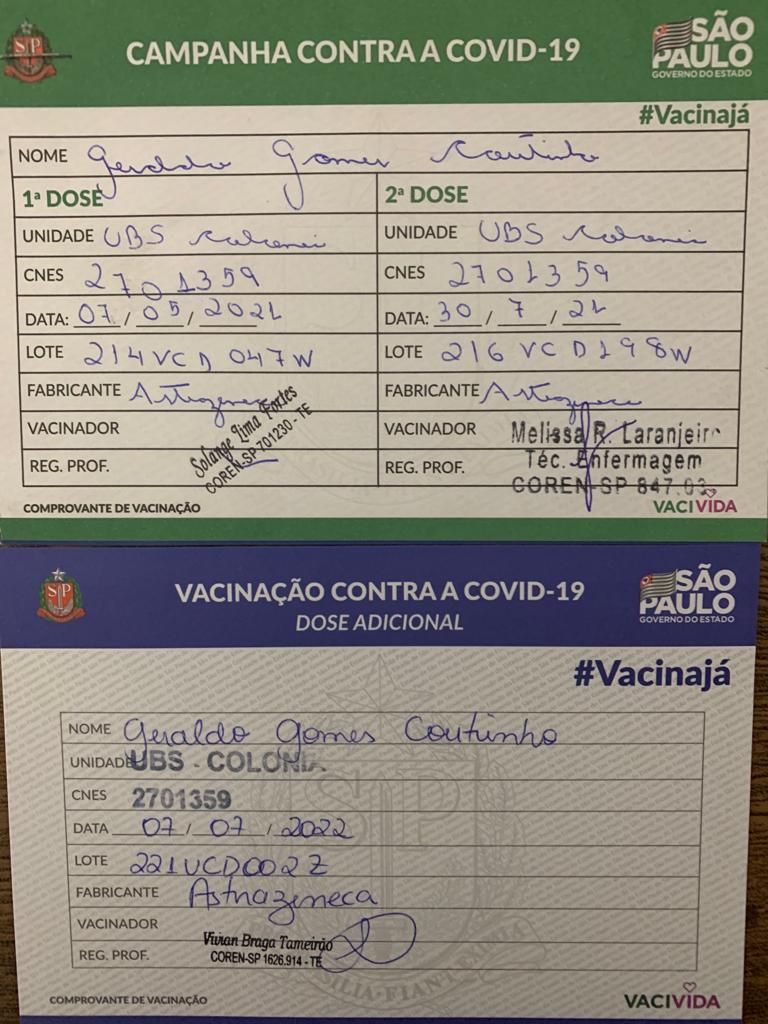 SP
CAMPANHA CONTRA A COVID-19
SÃO PAULO
GOVERNO DO ESTADO
#Vacinajá
NOME Geraldo Gomes Coutinho
1ª DOSE 2ª DOSE
UNIDADE UBS Colonia UNIDADE UBS Colonia
CNES 2701359 CNES 2701359
DATA: 07/05/2021 DATA: 30/7/21
LOTE 214VCD047W LOTE 216VCD198W
FABRICANTE Astrazeneca FABRICANTE Astrazeneca
VACINADOR Solange Lima Fortes VACINADOR Melissa R. Laranjeir
Téc. Enfermagem
REG. PROF. COREN-SP 701230 - TE REG. PROF. COREN-SP 847.03
COMPROVANTE DE VACINAÇÃO VACIVIDA
SP
VACINAÇÃO CONTRA A COVID-19
DOSE ADICIONAL
SÃO PAULO
GOVERNO DO ESTADO
#Vacinajá
NOME Geraldo Gomes Coutinho
UNIDADE UBS - COLONIA
CNES 2701359
DATA 07/07/2022
LOTE 221VCD002Z
FABRICANTE Astrazeneca
VACINADOR Vivian Braga Tameirão
REG. PROF. COREN-SP 1626.914 - TE
COMPROVANTE DE VACINAÇÃO VACIVIDA